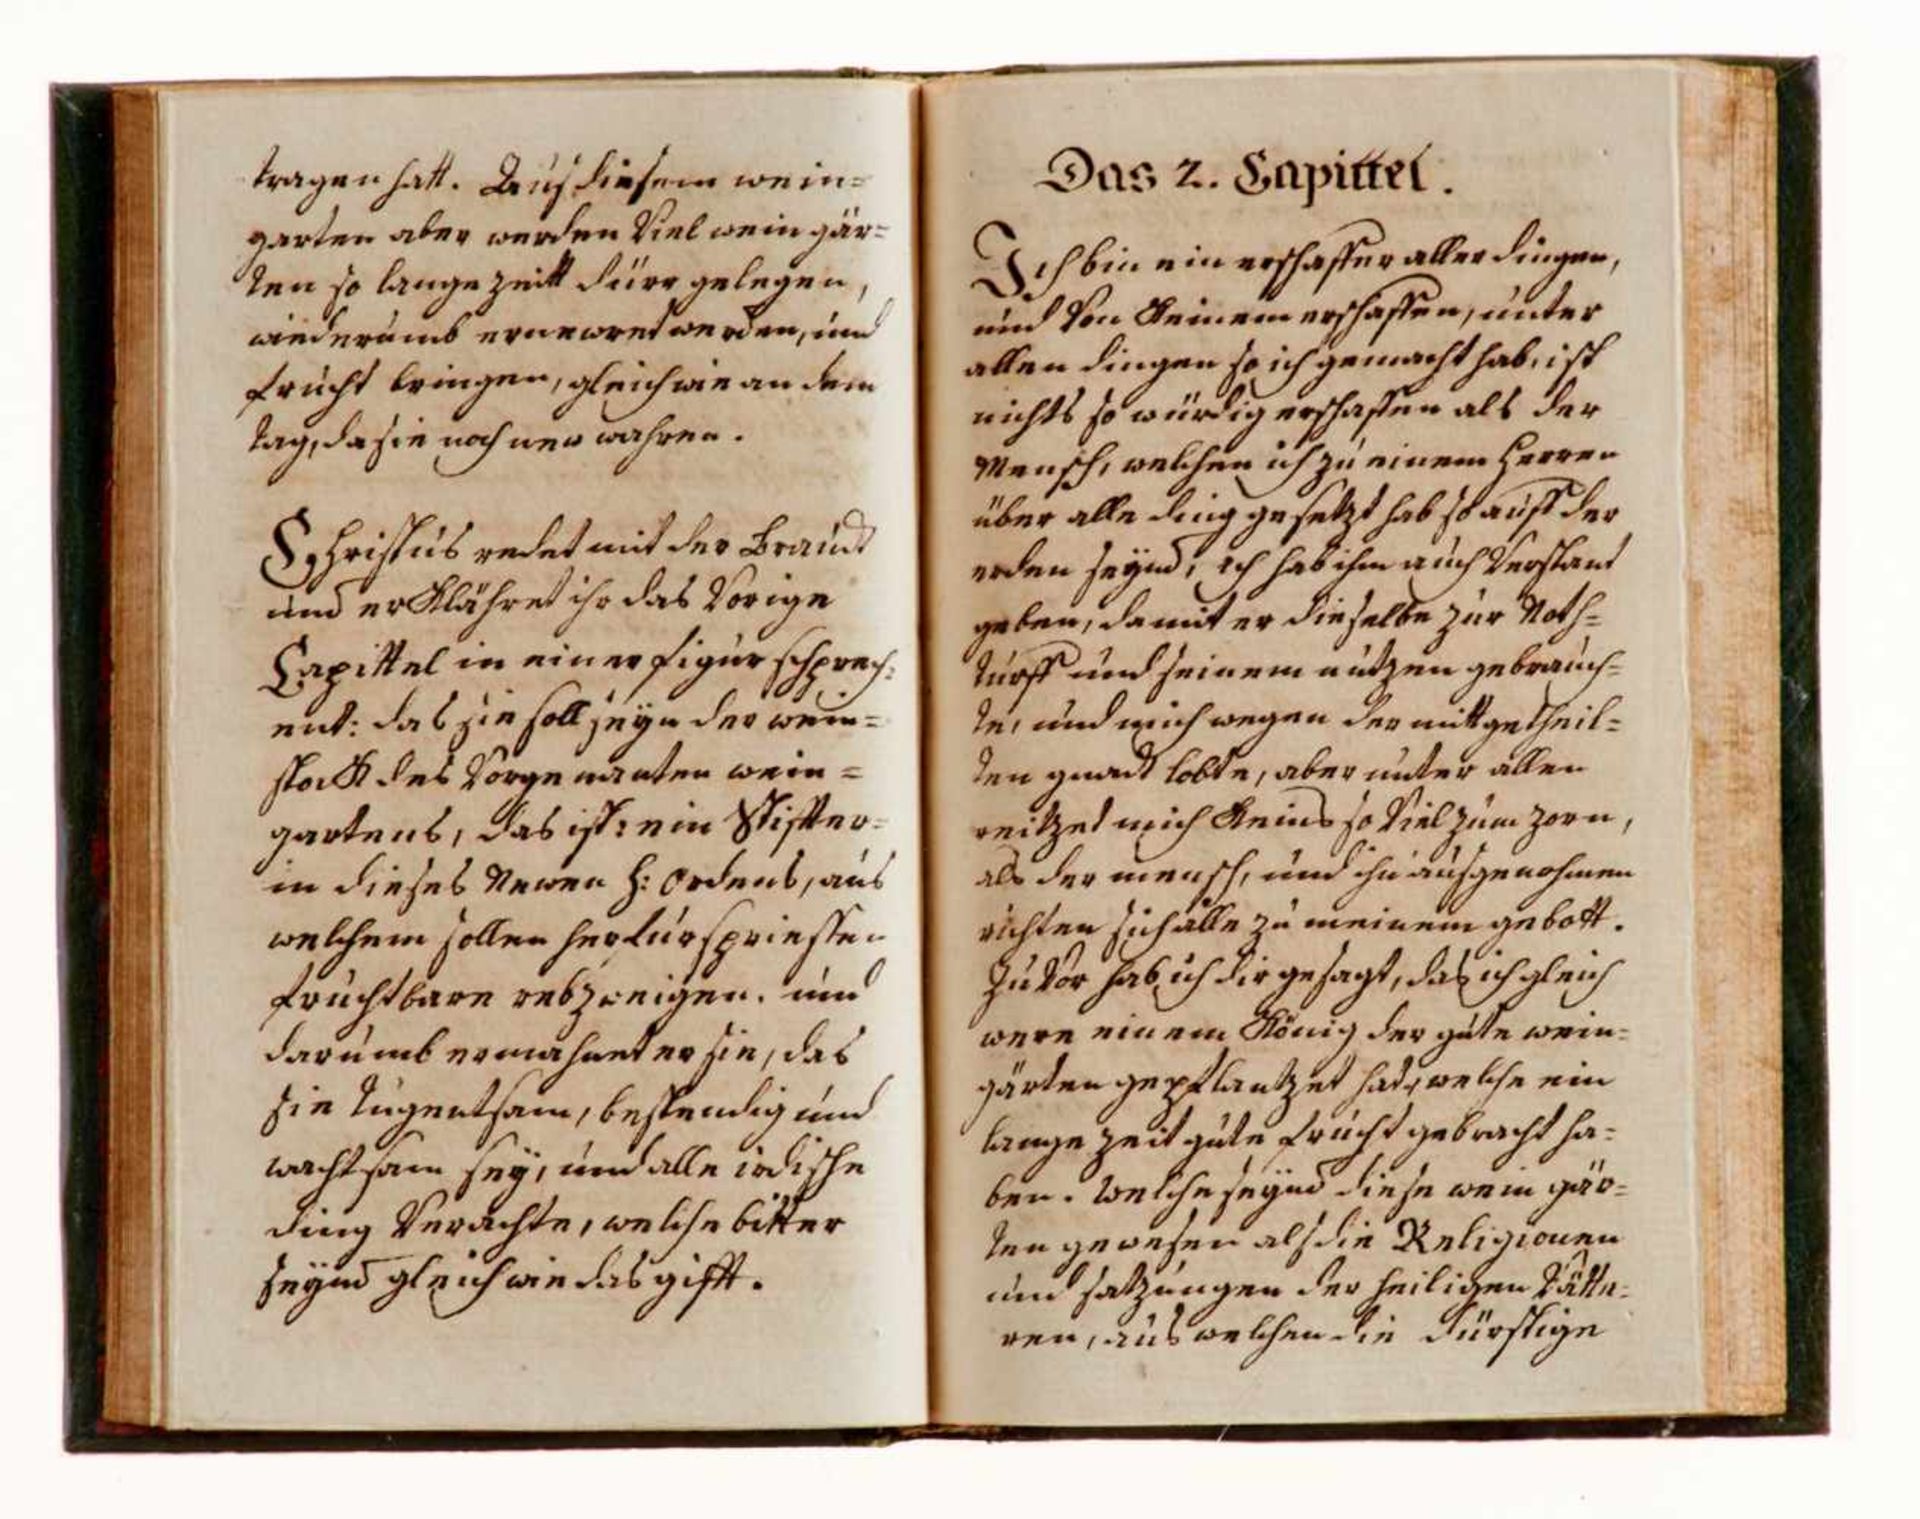 tragen hatt. Aus diesem wein=
garten aber werden Viel wein gär=
ten so lange zeitt dürr gelegen,
wiederumb ernewret werden, und
frucht bringen, gleich wie an dem
tag, da sie noch new wahren.
Christus redet mit der Braudt
und erklähret ihr das Vorige
Capittel in einer figur schprech=
ent: das sie soll seyn der wein=
stock des Vorgenanten wein=
gartens, das ist: ein Stiffter=
in dieses Newen H: Ordens, aus
welchem sollen herfür spriessen
fruchtbare rebzweigen. und
darumb ermahnet er sie, das
sie tugentsam, bestendig und
wachtsam sey, und alle irdische
ding Verachte, welche bitter
seynd gleich wie das gifft.
Das 2. Capittel.
Ich bin ein erschaffer aller dingen,
und Von Keinem erschaffen, unter
allen dingen so ich gemacht hab, ist
nichts so würdig erschaffen als der
Mensch, welchen ich zu einem Herren
über alle ding gesetzt hab so auff der
erden seynd, ich hab ihm auch Verstant
geben, damit er dieselbe zur Noth=
turff und seinem nutzen gebrauch=
te, und mich wegen der mittgetheil=
ten gnadt lobte, aber unter allen
reitzet mich Keins so Viel zum zorn,
als der mensch, und ihn ausgenohmen
richten sich alle zu meinem gebott.
Zu Vor hab ich dir gesagt, das ich gleich
were einem König der gute wein=
gärten gepflantzet hat, welche ein
lange zeit gute frucht gebracht ha=
ben. Welche seynd diese wein gär=
ten gewesen als die Religionen
und satzungen der heiligen Vätte=
ren, aus welchen die dürstige